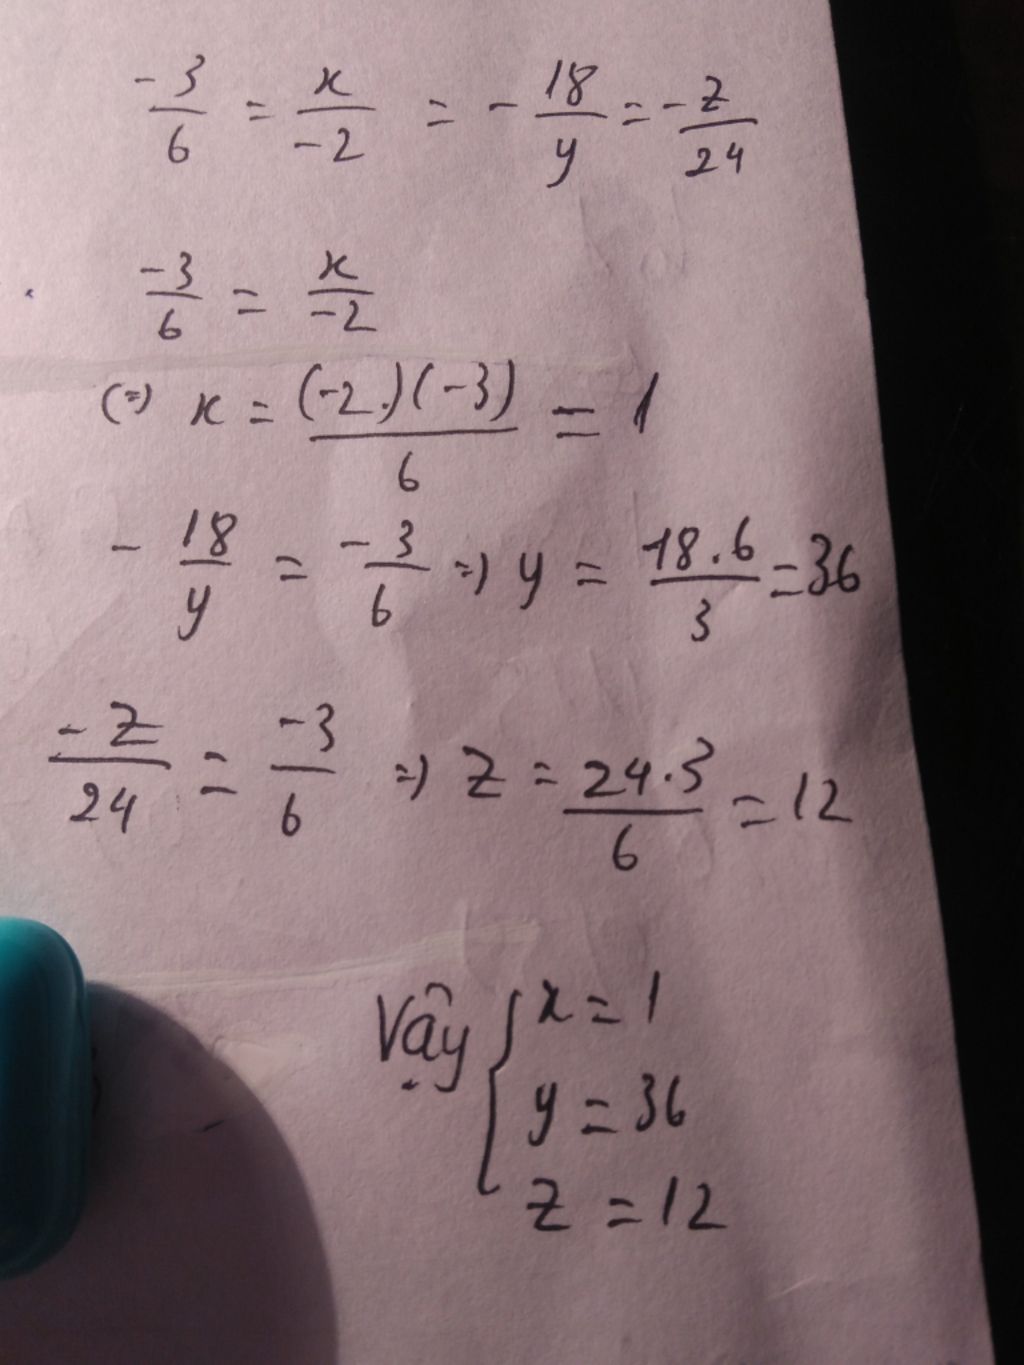 -3/6 = x/-2 = - 18/y = - z/24
-3/6 = x/-2
(=) x = (-2.)(-3)/6 = 1
- 18/y = -3/6 =) y = 18.6/3 = 36
-z/24 = -3/6 =) z = 24.3/6 = 12
Vậy { x = 1
y = 36
z = 12